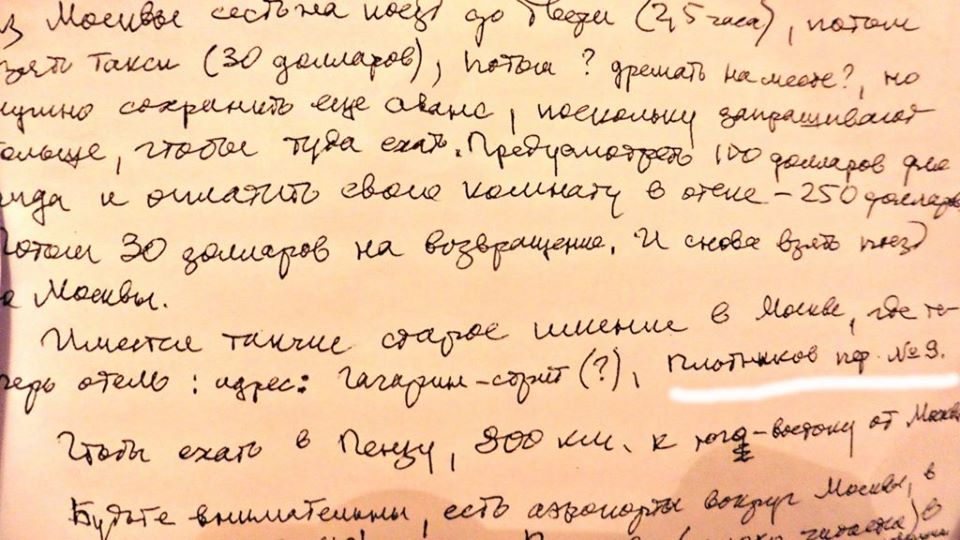 Москвы сесть на поезд до Твери (2,5 часа), потом
взять такси (30 долларов), потом ? дремать на месте?, но
нужно сохранить еще аванс, поскольку запрашивают
больше, чтобы туда ехать. Предусмотреть 100 долларов для
гида и оплатить свою комнату в отеле – 250 долларов
Потом 30 долларов на возвращение. И снова взять поезд
Москвы.
Имеется также старое имение в Москве, где те-
перь отель: адрес: Гагарин-стрит (?), Плотников пер. № 9.
Чтобы ехать в Пензу, 800 км. к юго-востоку от Москв
Будьте внимательны, есть аэропорты вокруг Москвы, в